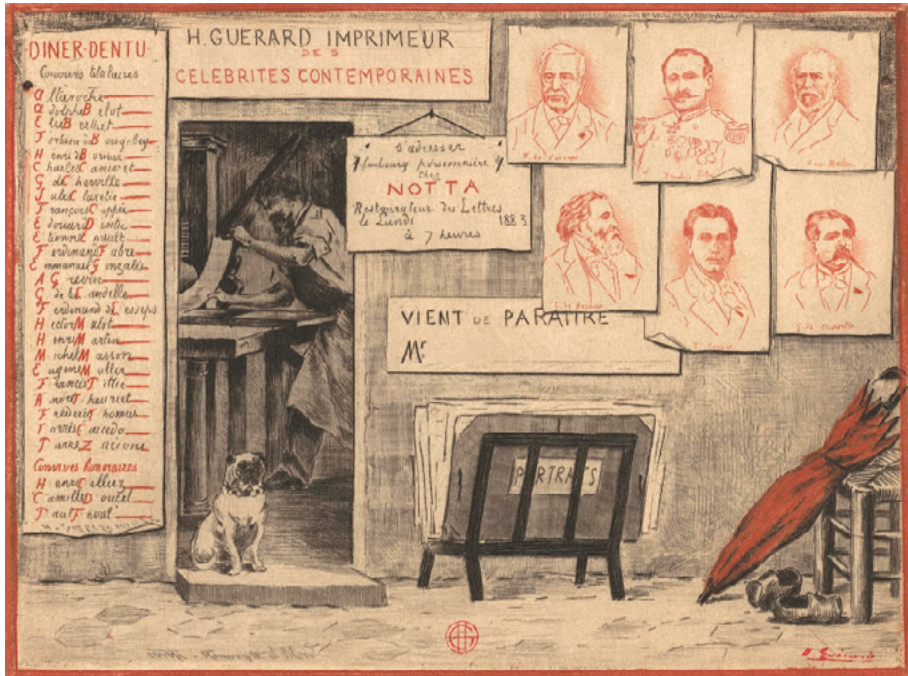 DINER-DENTU
Convives titulaires
Altaroche
Adolphe Belot
Elie Berthet
Fortuné du Boisgobey
Henri de Bornier
Charles Canivet
G. de Cherville
Jules Claretie
François Coppée
Edouard Dentu
Etienne Enault
Ferdinand Fabre
Emmanuel Gonzalès
A Grévin
G de la Landelle
Ferdinand de Lesseps
Hector Malot
Henri Martin
Michel Masson
Eugène Muller
Francis Tittie
André Theuriet
Frédéric Thomas
Torrès Caïcedo
Pierre Zaccone
Convives honoraires
Henri Celliez
Camille Doucet
Paul Féval
H. GUERARD IMPRIMEUR
DES
CELEBRITES CONTEMPORAINES
s'adresser
faubourg poissonnière
chez
NOTTA
Restaurateur des Lettres
le Lundi 1883
à 7 heures
VIENT DE PARAITRE
Mr
PORTRAITS
G. de Cherville
H. Guérard